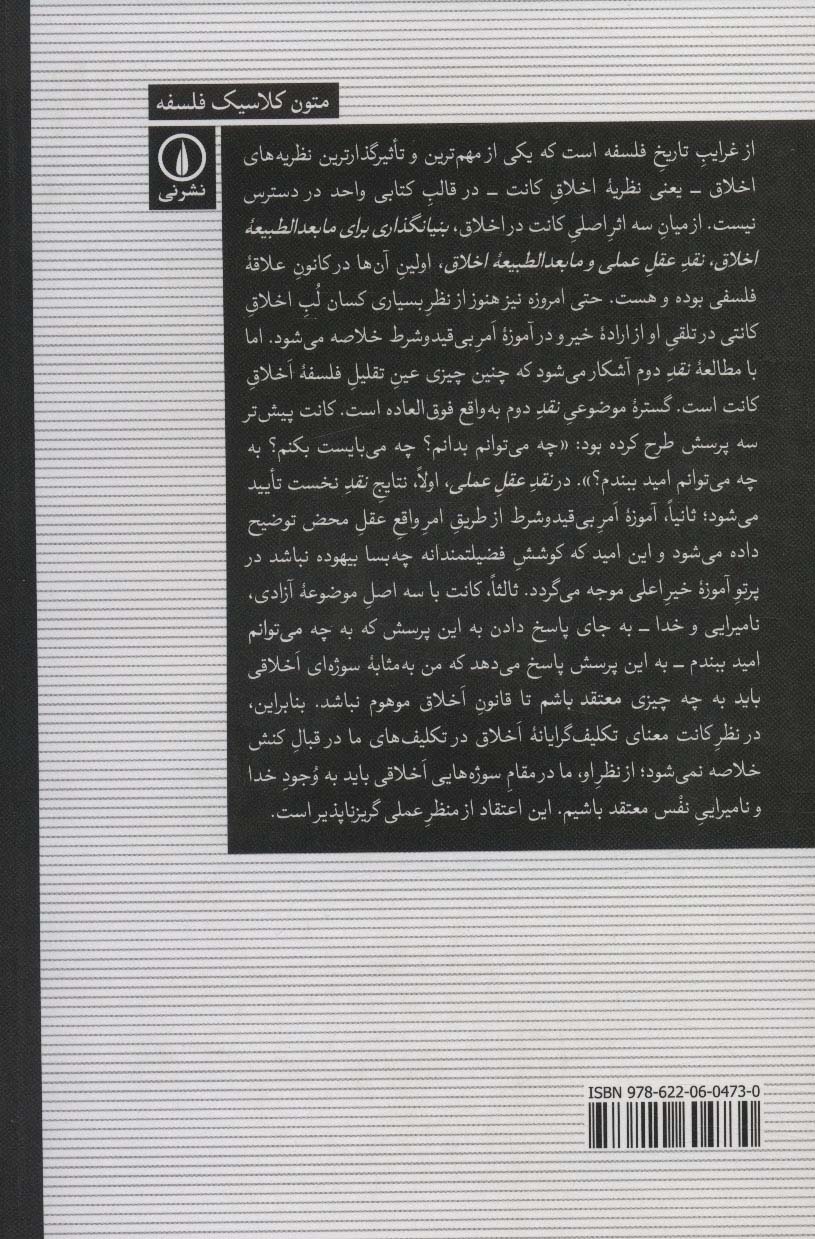 متون کلاسیک فلسفه
نشرنی
از غرایبِ تاریخِ فلسفه است که یکی از مهم‌ترین و تأثیرگذارترین نظریه‌های
اخلاق – یعنی نظریهٔ اخلاقِ کانت – در قالبِ کتابی واحد در دسترس
نیست. از میانِ سه اثرِ اصلیِ کانت در اخلاق، بنیانگذاری برای مابعدالطبیعهٔ
اخلاق، نقدِ عقلِ عملی و مابعدالطبیعهٔ اخلاق، اولینِ آن‌ها در کانونِ علاقهٔ
فلسفی بوده و هست. حتی امروزه نیز هنوز از نظرِ بسیاری کسان لُبِ اخلاقِ
کانتی در تلقیِ او از ارادهٔ خیر و در آموزهٔ اَمرِ بی‌قیدوشرط خلاصه می‌شود. اما
با مطالعهٔ نقدِ دوم آشکار می‌شود که چنین چیزی عینِ تقلیلِ فلسفهٔ اَخلاقِ
کانت است. گسترهٔ موضوعیِ نقدِ دوم به‌واقع فوق‌العاده است. کانت پیش‌تر
سه پرسش طرح کرده بود: «چه می‌توانم بدانم؟ چه می‌بایست بکنم؟ به
چه می‌توانم امید ببندم؟». در نقدِ عقلِ عملی، اولاً، نتایجِ نقدِ نخست تأیید
می‌شود؛ ثانیاً، آموزهٔ اَمرِ بی‌قیدوشرط از طریقِ امرِ واقعِ عقلِ محض توضیح
داده می‌شود و این امید که کوششِ فضیلتمندانه چه‌بسا بیهوده نباشد در
پرتوِ آموزهٔ خیرِ اعلی موجه می‌گردد. ثالثاً، کانت با سه اصلِ موضوعهٔ آزادی،
نامیرایی و خدا – به جای پاسخ دادن به این پرسش که به چه می‌توانم
امید ببندم – به این پرسش پاسخ می‌دهد که من به‌مثابهٔ سوژه‌ای اَخلاقی
باید به چه چیزی معتقد باشم تا قانونِ اَخلاق موهوم نباشد. بنابراین،
در نظرِ کانت معنای تکلیف‌گرایانهٔ اَخلاق در تکلیف‌های ما در قبالِ کنش
خلاصه نمی‌شود؛ از نظرِ او، ما در مقامِ سوژه‌هایی اَخلاقی باید به وُجودِ خدا
و نامیراییِ نفْس معتقد باشیم. این اعتقاد از منظرِ عملی گریزناپذیر است.
ISBN 978-622-06-0473-0